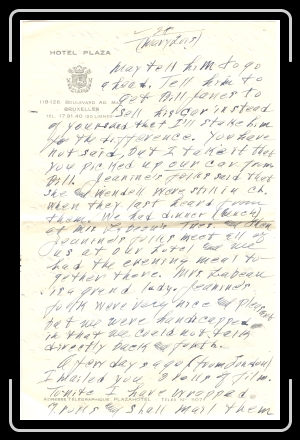 (Mary Lois)
HOTEL PLAZA
may tell him to go
ahead. Tell him to
get Bill Janes to
118-126, BOULEVARD AD. MAX
BRUXELLES
sell his car instead
TÉL. 17.81.40
of yours and then I'll stake him
for the difference. You have
not said, but I take it that
you picked up our car from
Bill. Jeannine's folks said that
she and Wendell were still in Ch.
when they last heard from
them. We had dinner (lunch)
at Mrs. and then
Jeannine's folks meet all of
us at our hotel and we
had the evening meal to-
gether there. Mrs.
is a grand lady. Jeannine's
folk were very nice and pleasant
but we were handicapped
in that we could not talk
directly back and forth.
A few days ago (from London)
I mailed you 3 rolls of film.
Tonite I have wrapped
7 rolls and shall mail them
ADRESSE TÉLÉGRAPHIQUE PLAZAHOTEL